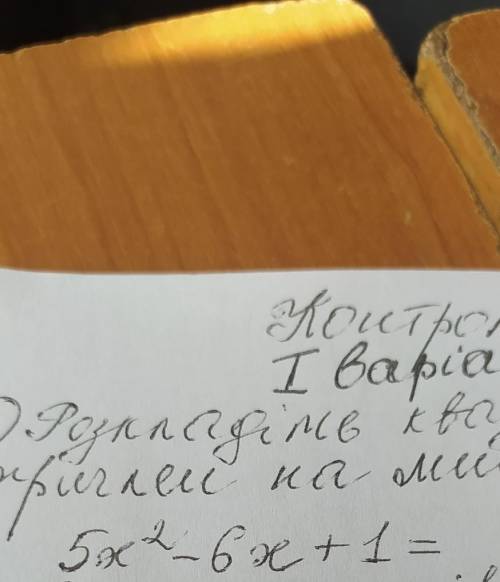 Контрол
І варіа
) Розкладіть ква
тричлен на
5x² - 6x + 1 =